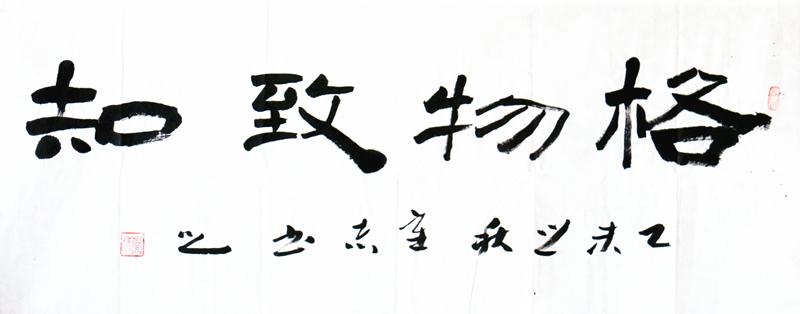 格物致知
乙未之秋志书之